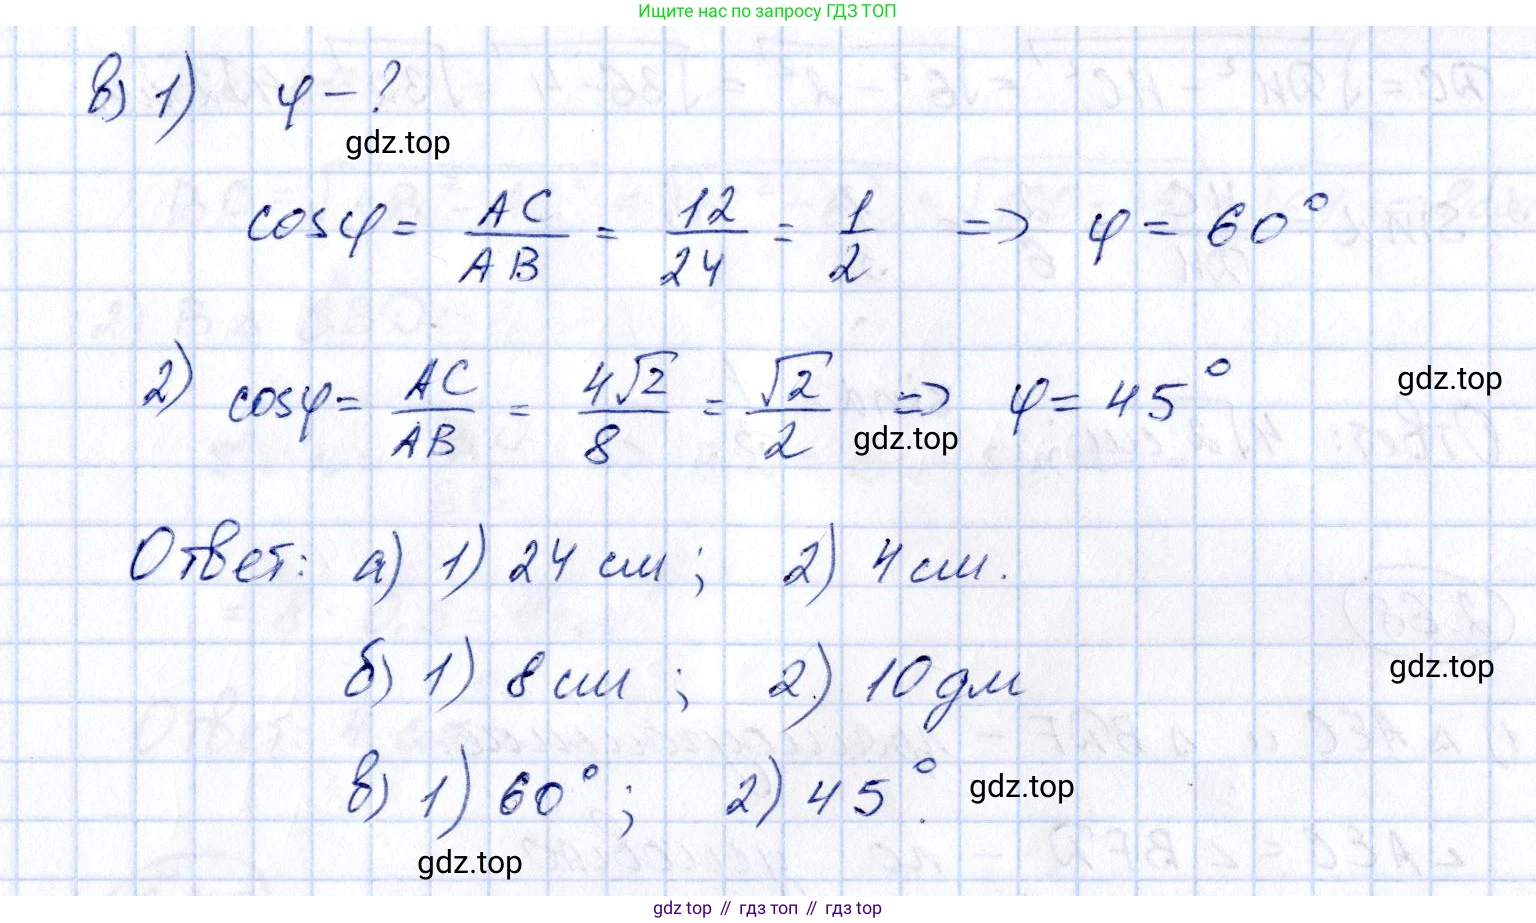 Ищите нас по запросу ГДЗ ТОП
в) 1) φ – ?
gdz.top
cosφ = AC/AB = 12/24 = 1/2 => φ = 60°
gdz.top
2) cosφ = AC/AB = 4√2/8 = √2/2 => φ = 45°
gdz.top
Ответ: а) 1) 24 см; 2) 4 см.
б) 1) 8 см; 2) 10 дм
gdz.top
в) 1) 60°; 2) 45°.
gdz.top
gdz.top
gdz.top // гдз топ // gdz.top